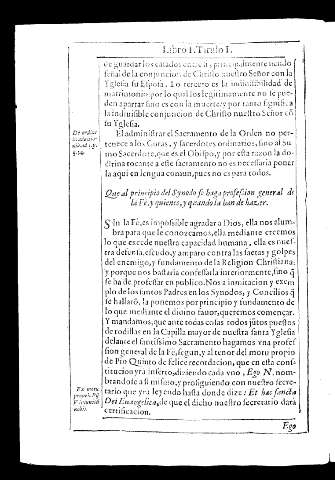 Libro I. Titulo I.
de guardar los casados entre si, principalmente siendo
señal de la conjuncion de Christo nuestro Señor con la
Yglesia su Esposa. Lo tercero es la indiuisibilidad de
matrimonio por lo qual los legitimamente no se pue-
den apartar sino es con la muerte y por tanto significa
la indiuisible conjuncion de Christo nuestro Señor cõ
su Yglesia.
El administrar el Sacramento de la Orden no per-
tenece a los Curas, y sacerdotes ordinarios, sino al Su-
mo Sacerdote, que es el Obispo, y por esta razon la do-
ctrina tocante a este sacramento no es necessaria poner
la aqui en lengua comun, pues no es para todos.
Que al principio del Synodo se haga profession general de
la Fè, y quienes, y quando la han de hazer.
SIn la Fè, es impossible agradar a Dios, ella nos alum-
bra para que le conozcamos, ella mediante creemos
lo que excede nuestra capacidad humana, ella es nues-
tra defensa, escudo, y amparo contra las saetas y golpes
del enemigo, y fundamento de la Religion Christiana:
y porque nos bastaria confessarla interiormente, sino q̃
se ha de professar en publico. Nos a imitacion y exem
plo de los santos Padres en los Synodos, y Concilios q̃
se hallarõ, la ponemos por principio y fundamento de
lo que mediante el diuino fauor, queremos començar.
Y mandamos, que ante todas cosas todos juntos puestos
de rodillas en la Capilla mayor de nuestra santa Yglesia
delante el santissimo Sacramento hagamos vna profes
sion general de la Fè, segun, y al tenor del motu proprio
de Pio Quinto de felice recordacion, que en esta consti-
titucion yra inserto, diziendo cada vno, Ego N. nom-
brandose a si mismo, y prosiguiendo con nuestro secre-
tario que yra leyendo hasta donde dize: Et hæc sancta
Dei Euangelia, de que el dicho nuestro secretario dara
certificacion.
Ego